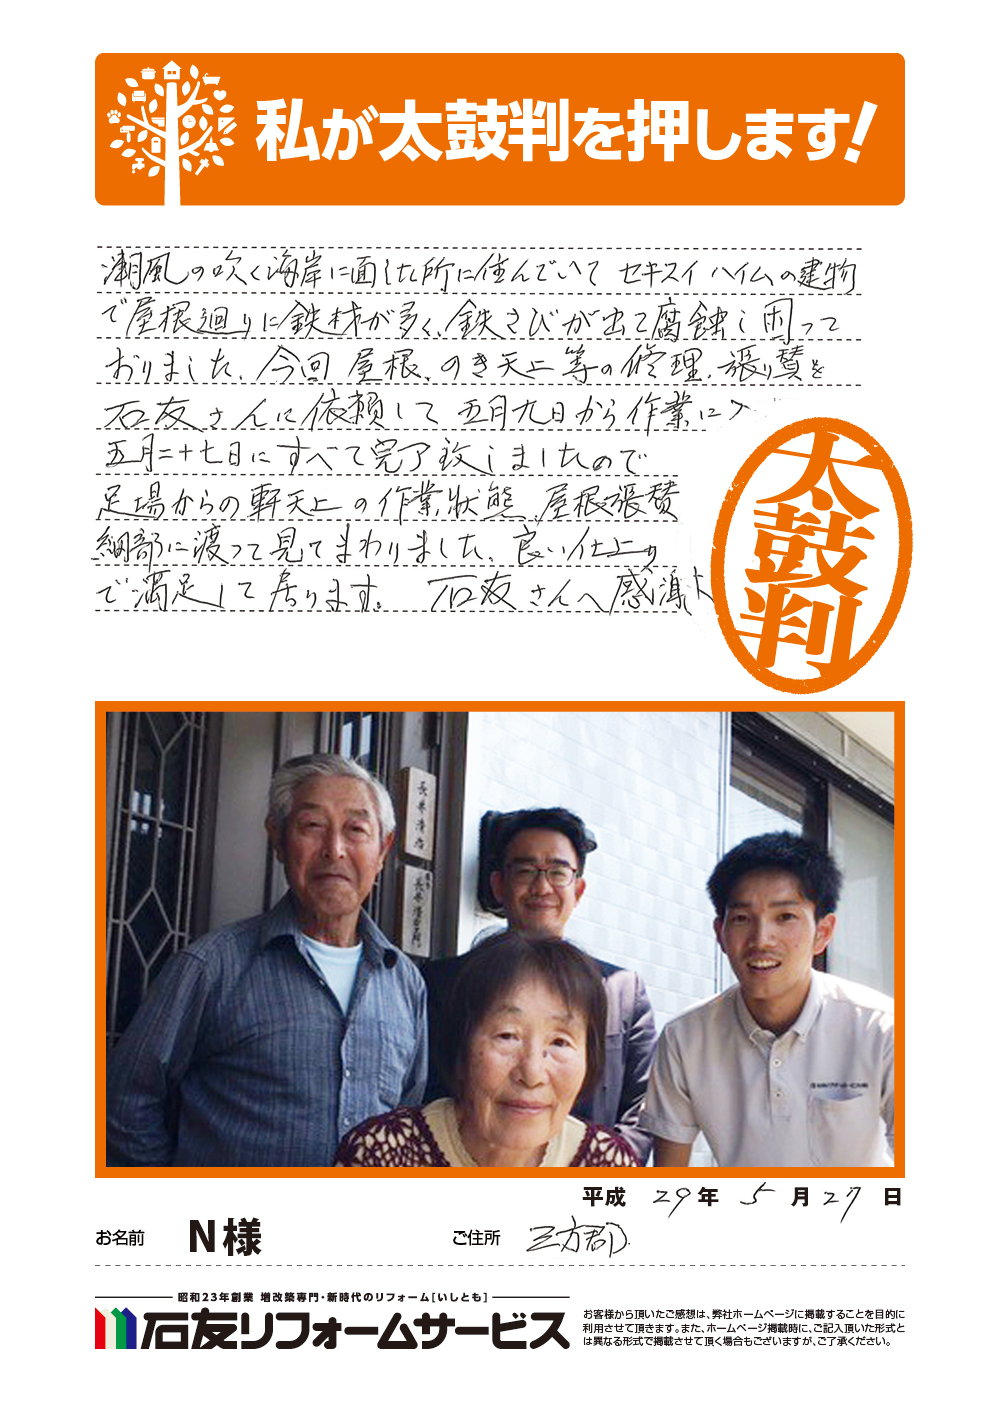 私が太鼓判を押します!
潮風の吹く海岸に面した所に住んでいて セキスイハイムの建物
で屋根廻りに鉄材が多く、鉄さびが出て腐蝕し困って
おりました、今回 屋根、のき天上等の修理、張り賛を
石友さんに依頼して 五月九日から作業に入
五月二十七日にすべて完了致しましたので
足場からの軒天上の作業状態、屋根張賛
細部に渡って見てまわりました、良い仕上り
で満足して居ります。 石友さんへ感謝
太鼓判
長井
長井
平成 29年 5月27日
お名前 N様 ご住所 三方郡
昭和23年創業 増改築専門・新時代のリフォーム[いしとも]
石友リフォームサービス
お客様から頂いたご感想は、弊社ホームページに掲載することを目的に
利用させて頂きます。また、ホームページ掲載時に、ご記入頂いた形式と
は異なる形式で掲載させて頂く場合もございますが、ご了承ください。